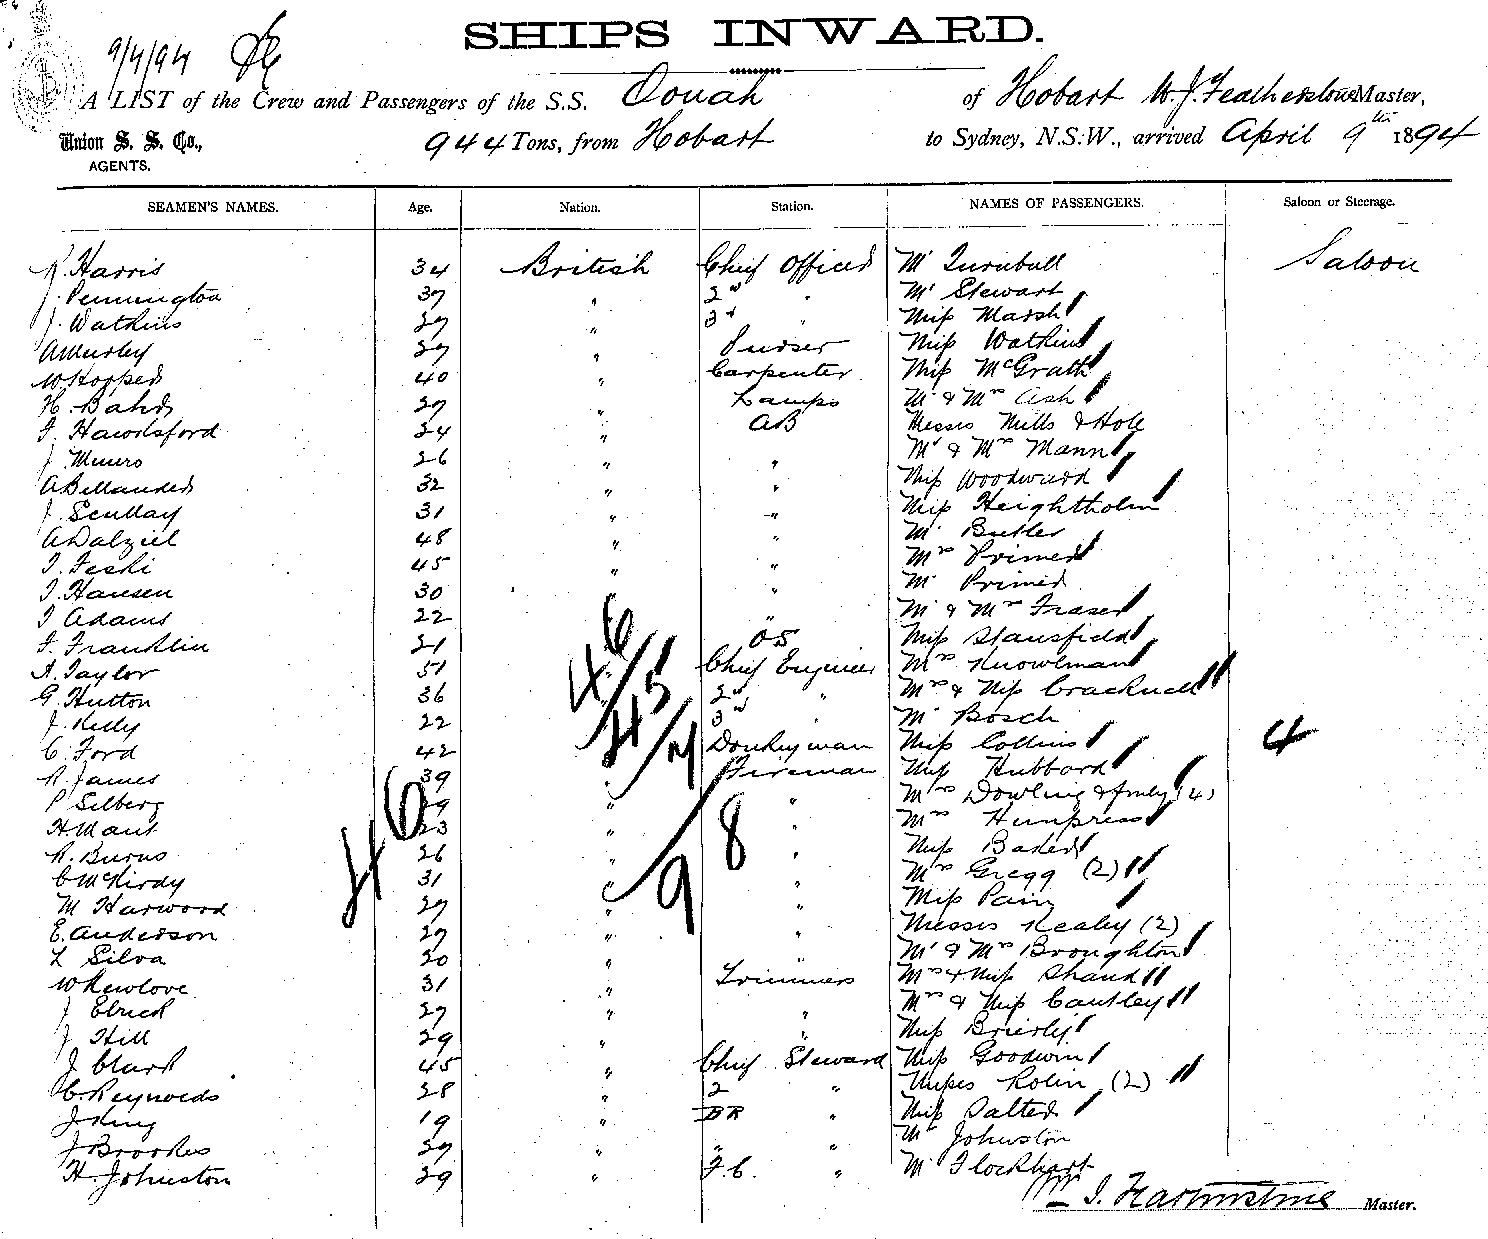 SHIPS INWARD.
9/4/94
A LIST of the Crew and Passengers of the S.S. Oonah of Hobart W. J. Featherstone Master,
Union S. S. Co., 944 Tons, from Hobart to Sydney, N.S.W., arrived April 9th 1894
AGENTS.
SEAMEN'S NAMES. Age. Nation. Station. NAMES OF PASSENGERS. Saloon or Steerage.
R. Harris 34 British Chief Officer Mr Turnbull Saloon
J. Pennington 37 " 2nd " Mr Stewart
J. Watkins 27 " 3rd " Miss Marsh
27 " Purser Miss Watkins
W Hopper 40 " Carpenter Miss McGrath
H. 27 " Lamps Mr & Mrs Ash
24 " AB Messrs Mills & Hole
J. Munro 26 " " Mr & Mrs Mann
A 32 " " Miss Woodward
J. Scullay 31 " " Miss Heightholm
A Dalziel 48 " " Mr Butler
45 " " Mrs Primer
Hansen 30 " Mr Primer
Adams 22 " Mr & Mrs Fraser
F. Franklin 21 OS Miss Stansfield
A. Taylor 51 Chief Engineer Mrs Knowlman
G. Hutton 36 2nd " Mrs & Miss Cracknell
J. Kelly 22 3rd " Mr Bosch
C. Ford 42 Donkeyman Miss Collins 4
R. James 39 " Fireman Miss Hubbard
P Selberg 29 " " Mrs Dowling & family (4)
H. Mant 23 " " Mrs Humpress
R. Burns 26 " " Miss Baker
C McKirdy 31 " " Mrs Gregg (2)
M Harwood 27 " " Miss Pain
E. Anderson 27 " " Messrs Kealey (2)
L Silva 20 " " Mr & Mrs Broughton
W Newlove 31 " Trimmers Mrs & Miss Shand
J Elrick 27 " " Mrs & Miss Cautley
J Hill 29 " " Miss Brierly
J Clark 45 " Chief Steward Miss Goodwin
C. Reynolds 28 " 2 " Misses Rolin (2)
J King 19 " BR " Miss Salter
J Brookes 27 " " " Mr Johnston
H. Johnston 29 " F.C. " Mr Flockhart
46/45/
46
98
Wm J. Featherstone Master.